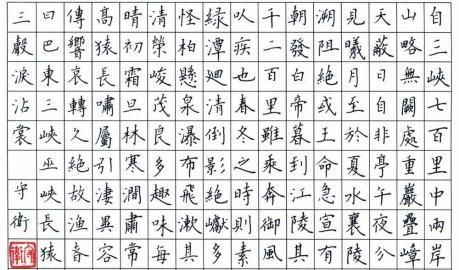 自三峽七百里中兩岸
山略無闕處重巖疊嶂
天蔽日自非亭午夜分
見曦月至於夏水襄陵
溯阻絕或王命急宣有
朝發白帝暮到江陵其
千二百里雖乘奔御風
以疾也春冬之時則素
綠潭迴清倒影絕巘多
怪柏懸泉瀑布飛漱其
清榮峻茂良多趣味每
晴初霜旦林寒澗肅常
高猿長嘯屬引淒異容
傳響哀轉久絕故漁音
曰巴東三峽巫峽長猿
三聲淚沾裳
守衛